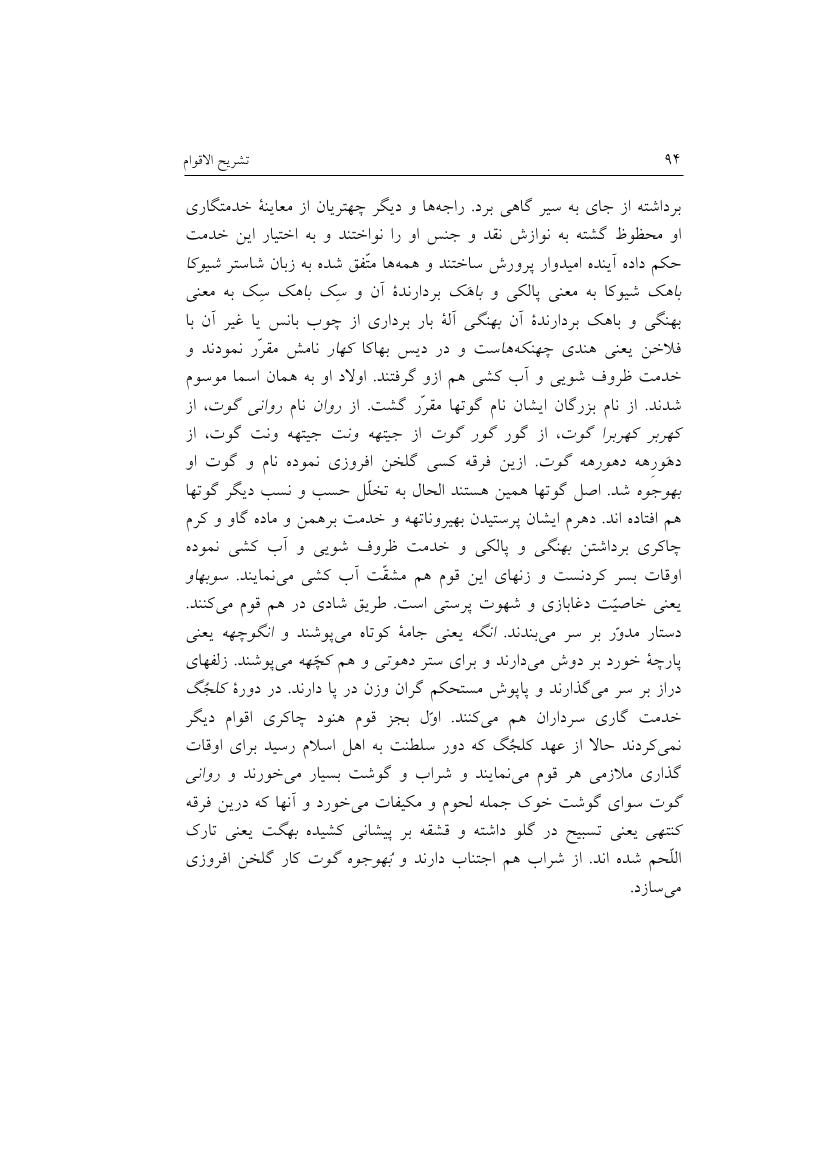 ۹۴ تشریح الاقوام
برداشته از جای به سیر گاهی برد. راجه‌ها و دیگر چهتریان از معاینهٔ خدمتگاری
او محظوظ گشته به نوازش نقد و جنس او را نواختند و به اختیار این خدمت
حکم داده آینده امیدوار پرورش ساختند و همه‌ها متّفق شده به زبان شاستر شیوکا
باهک شیوکا به معنی پالکی و باهَک بردارندهٔ آن و سِک باهک سِک به معنی
بهنگی و باهک بردارندهٔ آن بهنگی آلهٔ بار برداری از چوب بانس یا غیر آن با
فلاخن یعنی هندی چهنکه‌هاست و در دیس بهاکا کهار نامش مقرّر نمودند و
خدمت ظروف شویی و آب کشی هم ازو گرفتند. اولاد او به همان اسما موسوم
شدند. از نام بزرگان ایشان نام گوتها مقرّر گشت. از روان نام روانی گوت، از
کهربر کهربرا گوت، از گور گور گوت از جیتهه ونت جیتهه ونت گوت، از
دهَورِهه دهورهه گوت. ازین فرقه کسی گلخن افروزی نموده نام و گوت او
بهوجوه شد. اصل گوتها همین هستند الحال به تخلّل حسب و نسب دیگر گوتها
هم افتاده اند. دهرم ایشان پرستیدن بهیروناتهه و خدمت برهمن و ماده گاو و کرم
چاکری برداشتن بهنگی و پالکی و خدمت ظروف شویی و آب کشی نموده
اوقات بسر کردنست و زنهای این قوم هم مشقّت آب کشی می‌نمایند. سوبهاو
یعنی خاصیّت دغابازی و شهوت پرستی است. طریق شادی در هم قوم می‌کنند.
دستار مدوّر بر سر می‌بندند. انگه یعنی جامهٔ کوتاه می‌پوشند و انگوچهه یعنی
پارچهٔ خورد بر دوش می‌دارند و برای ستر دهوتی و هم کچّهه می‌پوشند. زلفهای
دراز بر سر می‌گذارند و پاپوش مستحکم گران وزن در پا دارند. در دورهٔ کلجُگ
خدمت گاری سرداران هم می‌کنند. اوّل بجز قوم هنود چاکری اقوام دیگر
نمی‌کردند حالا از عهد کلجُگ که دور سلطنت به اهل اسلام رسید برای اوقات
گذاری ملازمی هر قوم می‌نمایند و شراب و گوشت بسیار می‌خورند و روانی
گوت سوای گوشت خوک جمله لحوم و مکیفات می‌خورد و آنها که درین فرقه
کنتهی یعنی تسبیح در گلو داشته و قشقه بر پیشانی کشیده بهگت یعنی تارک
اللّحم شده اند. از شراب هم اجتناب دارند و بُهوجوه گوت کار گلخن افروزی
می‌سازد.